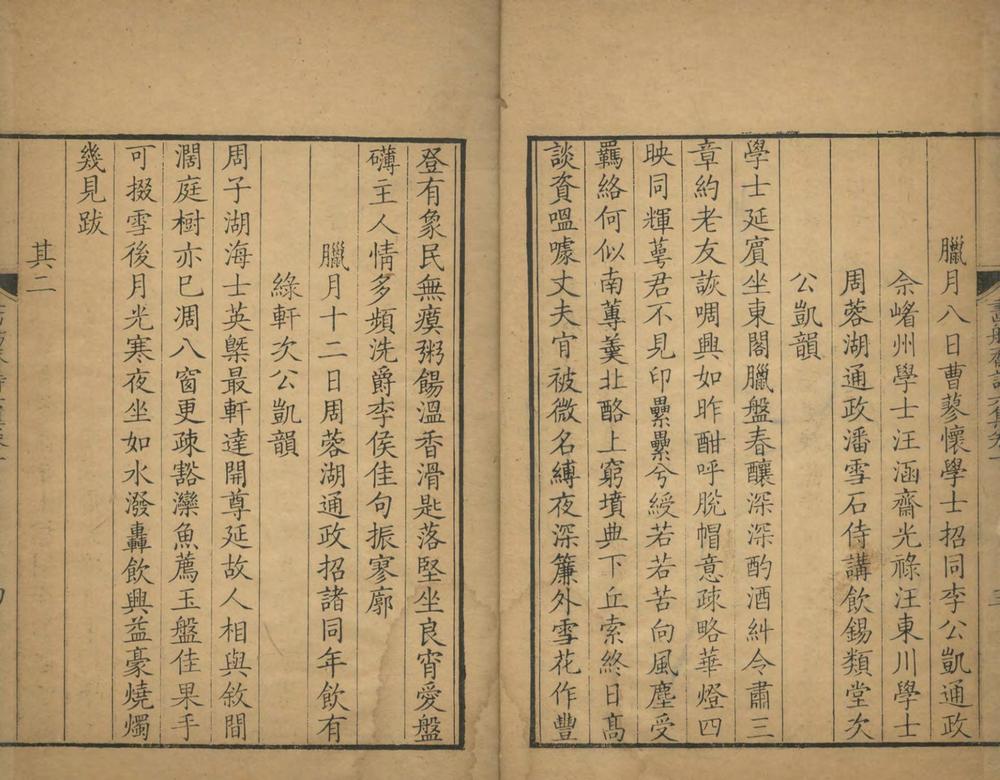 臘月八日曹蓼懷學士招同李公凱通政
佘崏州學士汪涵齋光祿汪東川學士
周蓉湖通政潘雪石侍講飲錫類堂次
公凱韻
學士延賓坐東閣臘盤春釀深深酌酒糾令肅三
章約老友詼啁興如昨酣呼脫帽意疎略華燈四
映同輝萼君不見印纍纍兮綬若若苦向風塵受
羈絡何似南蓴羹北酪上窮墳典下丘索終日高
談資嗢噱丈夫肎被微名縛夜深簾外雪花作豐
登有象民無瘼粥餳溫香滑匙落堅坐良宵愛盤
礴主人情多頻洗爵李侯佳句振寥廓
臘月十二日周蓉湖通政招諸同年飲有
綠軒次公凱韻
周子湖海士英槩最軒達開尊延故人相與敘間
濶庭樹亦已凋八窗更疎豁灤魚薦玉盤佳果手
可掇雪後月光寒夜坐如水潑轟飲興益豪燒燭
幾見跋
其二